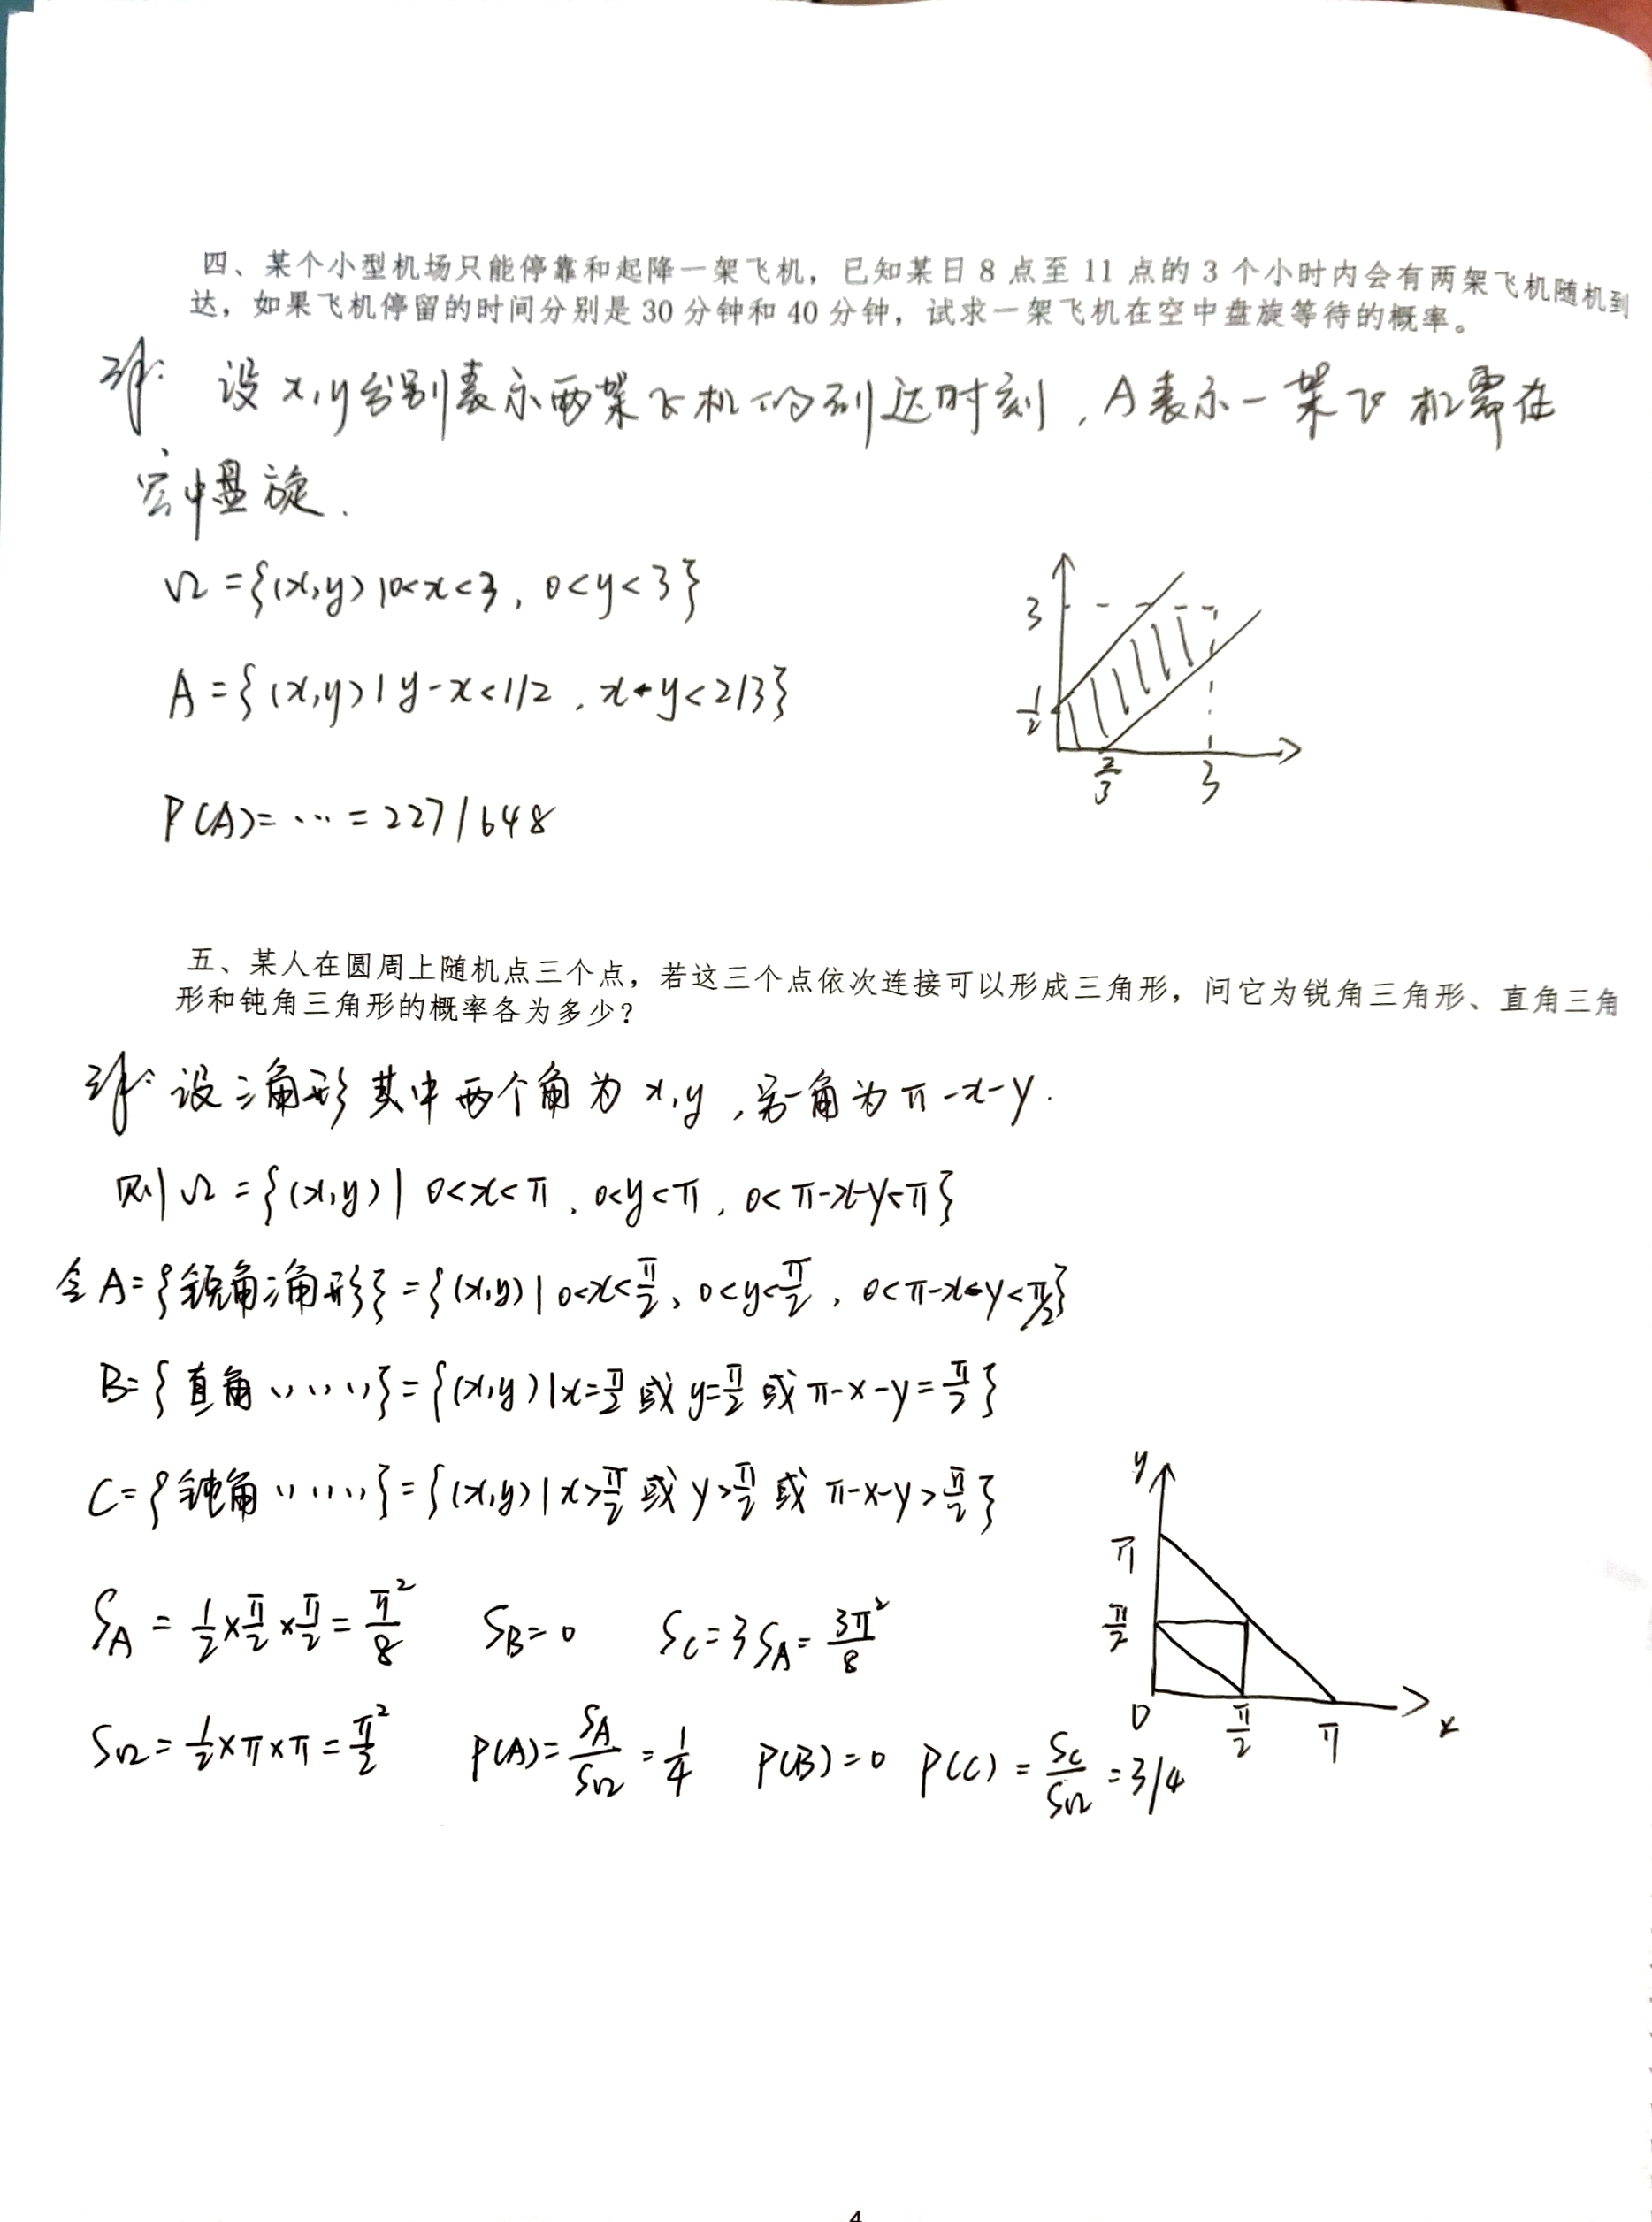 四、某个小型机场只能停靠和起降一架飞机，已知某日 8 点至 11 点的 3 个小时内会有两架飞机随机到
达，如果飞机停留的时间分别是 30 分钟和 40 分钟，试求一架飞机在空中盘旋等待的概率。
详: 设 x,y分别表示两架飞机的到达时刻, A表示一架飞机需在
空中盘旋.
Ω={(x,y)|0<x<3, 0<y<3}
A={(x,y)|y-x<1/2, x-y<2/3}
P(A)=…=227/648
3
1/2
2/3
3
五、某人在圆周上随机点三个点，若这三个点依次连接可以形成三角形，问它为锐角三角形、直角三角
形和钝角三角形的概率各为多少？
详: 设三角形其中两个角为 x,y, 另一角为π-x-y.
则Ω={(x,y)| 0<x<π, 0<y<π, 0<π-x-y<π}
令A={锐角三角形}={(x,y)|0<x<π/2, 0<y<π/2, 0<π-x-y<π/2}
B={直角、、、、、、}={(x,y)|x=π/2 或 y=π/2 或 π-x-y=π/2}
C={钝角、、、、、、}={(x,y)|x>π/2 或 y>π/2 或 π-x-y>π/2}
S_A=1/2×π/2×π/2=π²/8 S_B=0 S_C=3S_A=3π²/8
S_Ω=1/2×π×π=π²/2 P(A)=S_A/S_Ω=1/4 P(B)=0 P(C)=S_C/S_Ω=3/4
y
π
π/2
0
π/2
π
x
4